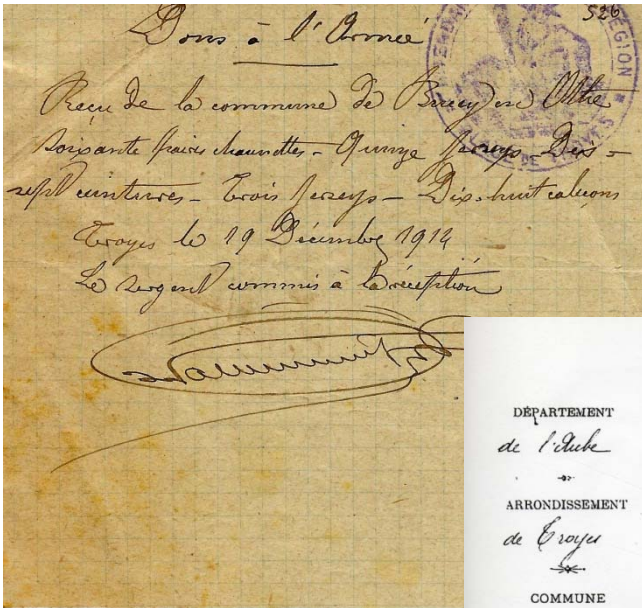 526
Dons à l'Armée
Reçu de la commune de Bucey en Othe
Soixante paires chaussettes - Quinze jerseys - Dix-
sept ceintures - Trois jerseys - Dix-huit caleçons
Troyes le 19 Décembre 1914
Le sergent commis à la réception
RÉGION
DE TROYES
DÉPARTEMENT
de l'Aube
ARRONDISSEMENT
de Troyes
COMMUNE